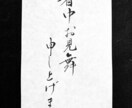 暑中お見舞
申し上げま